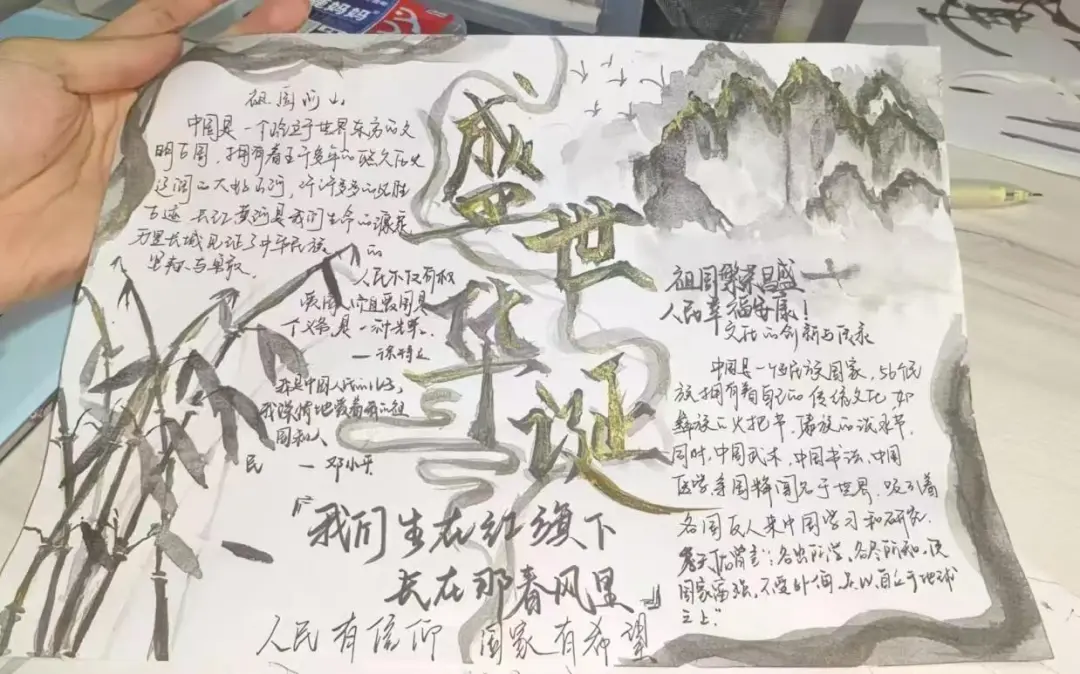 盛世华诞
祖国河山
中国是一个屹立于世界东方的文
明古国，拥有着五千多年的悠久历史
辽阔的大好山河，许许多多的名胜
古迹，长江黄河是我们生命的源泉
万里长城见证了中华民族的
坚韧与勇敢。
人民不仅有权
爱国，而且爱国是
个义务，是一种光荣。
—徐特立
我是中国人民的儿子，
我深情地爱着我的祖
国和人
民 —邓小平
祖国繁荣昌盛
人民幸福安康！
文化的创新与传承
中国是一个多民族国家，56个民
族拥有着自己的传统文化，如
彝族的火把节，傣族的泼水节。
同时，中国武术，中国书法，中国
医学，等国粹闻名于世界，吸引着
各国友人来中国学习和研究。
詹天佑曾言：“各出所学，各尽所知，使
国家富强，不受外侮，足以自立于地球
之上”
“我们生在红旗下
长在那春风里”
人民有信仰 国家有希望
妈妈